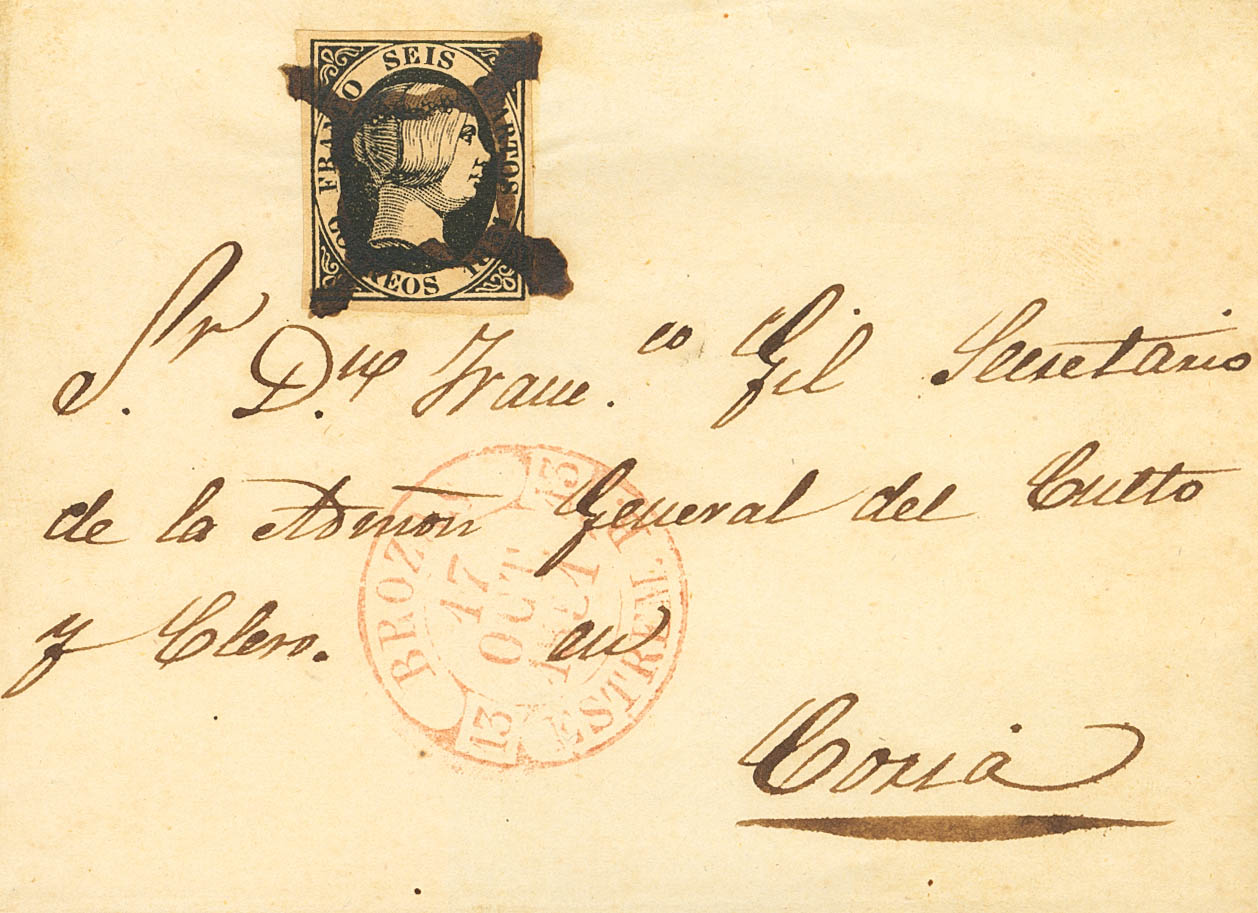 FRANCO SEIS CUARTOS
CORREOS 1851
Sr. D.n Franc.co Gil Secretario
de la Admon General del Culto
y Clero. en
Coria
BROZAS
17
OCT
1851
ESTREM. B.
13
13